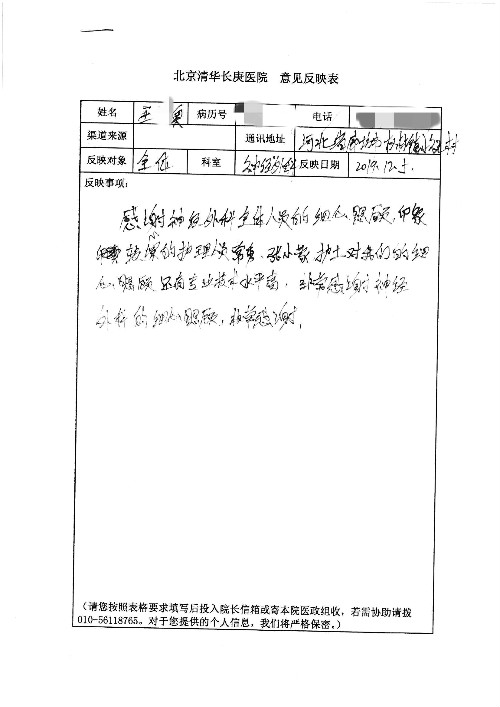 北京清华长庚医院 意见反映表
姓名 王 病历号 电话
渠道来源 通讯地址 河北省
反映对象 全体 科室 反映日期 2017.12.5.
反映事项：
感谢神经外科全体人员的细心照顾，印象
的护理员 张小敏护士对我们的细
心照顾 还有专业技术水平高，非常感谢神经
外科的细心照顾，非常感谢。
（请您按照表格要求填写后投入院长信箱或寄本院医政组收，若需协助请拨
010-56118765。对于您提供的个人信息，我们将严格保密。）